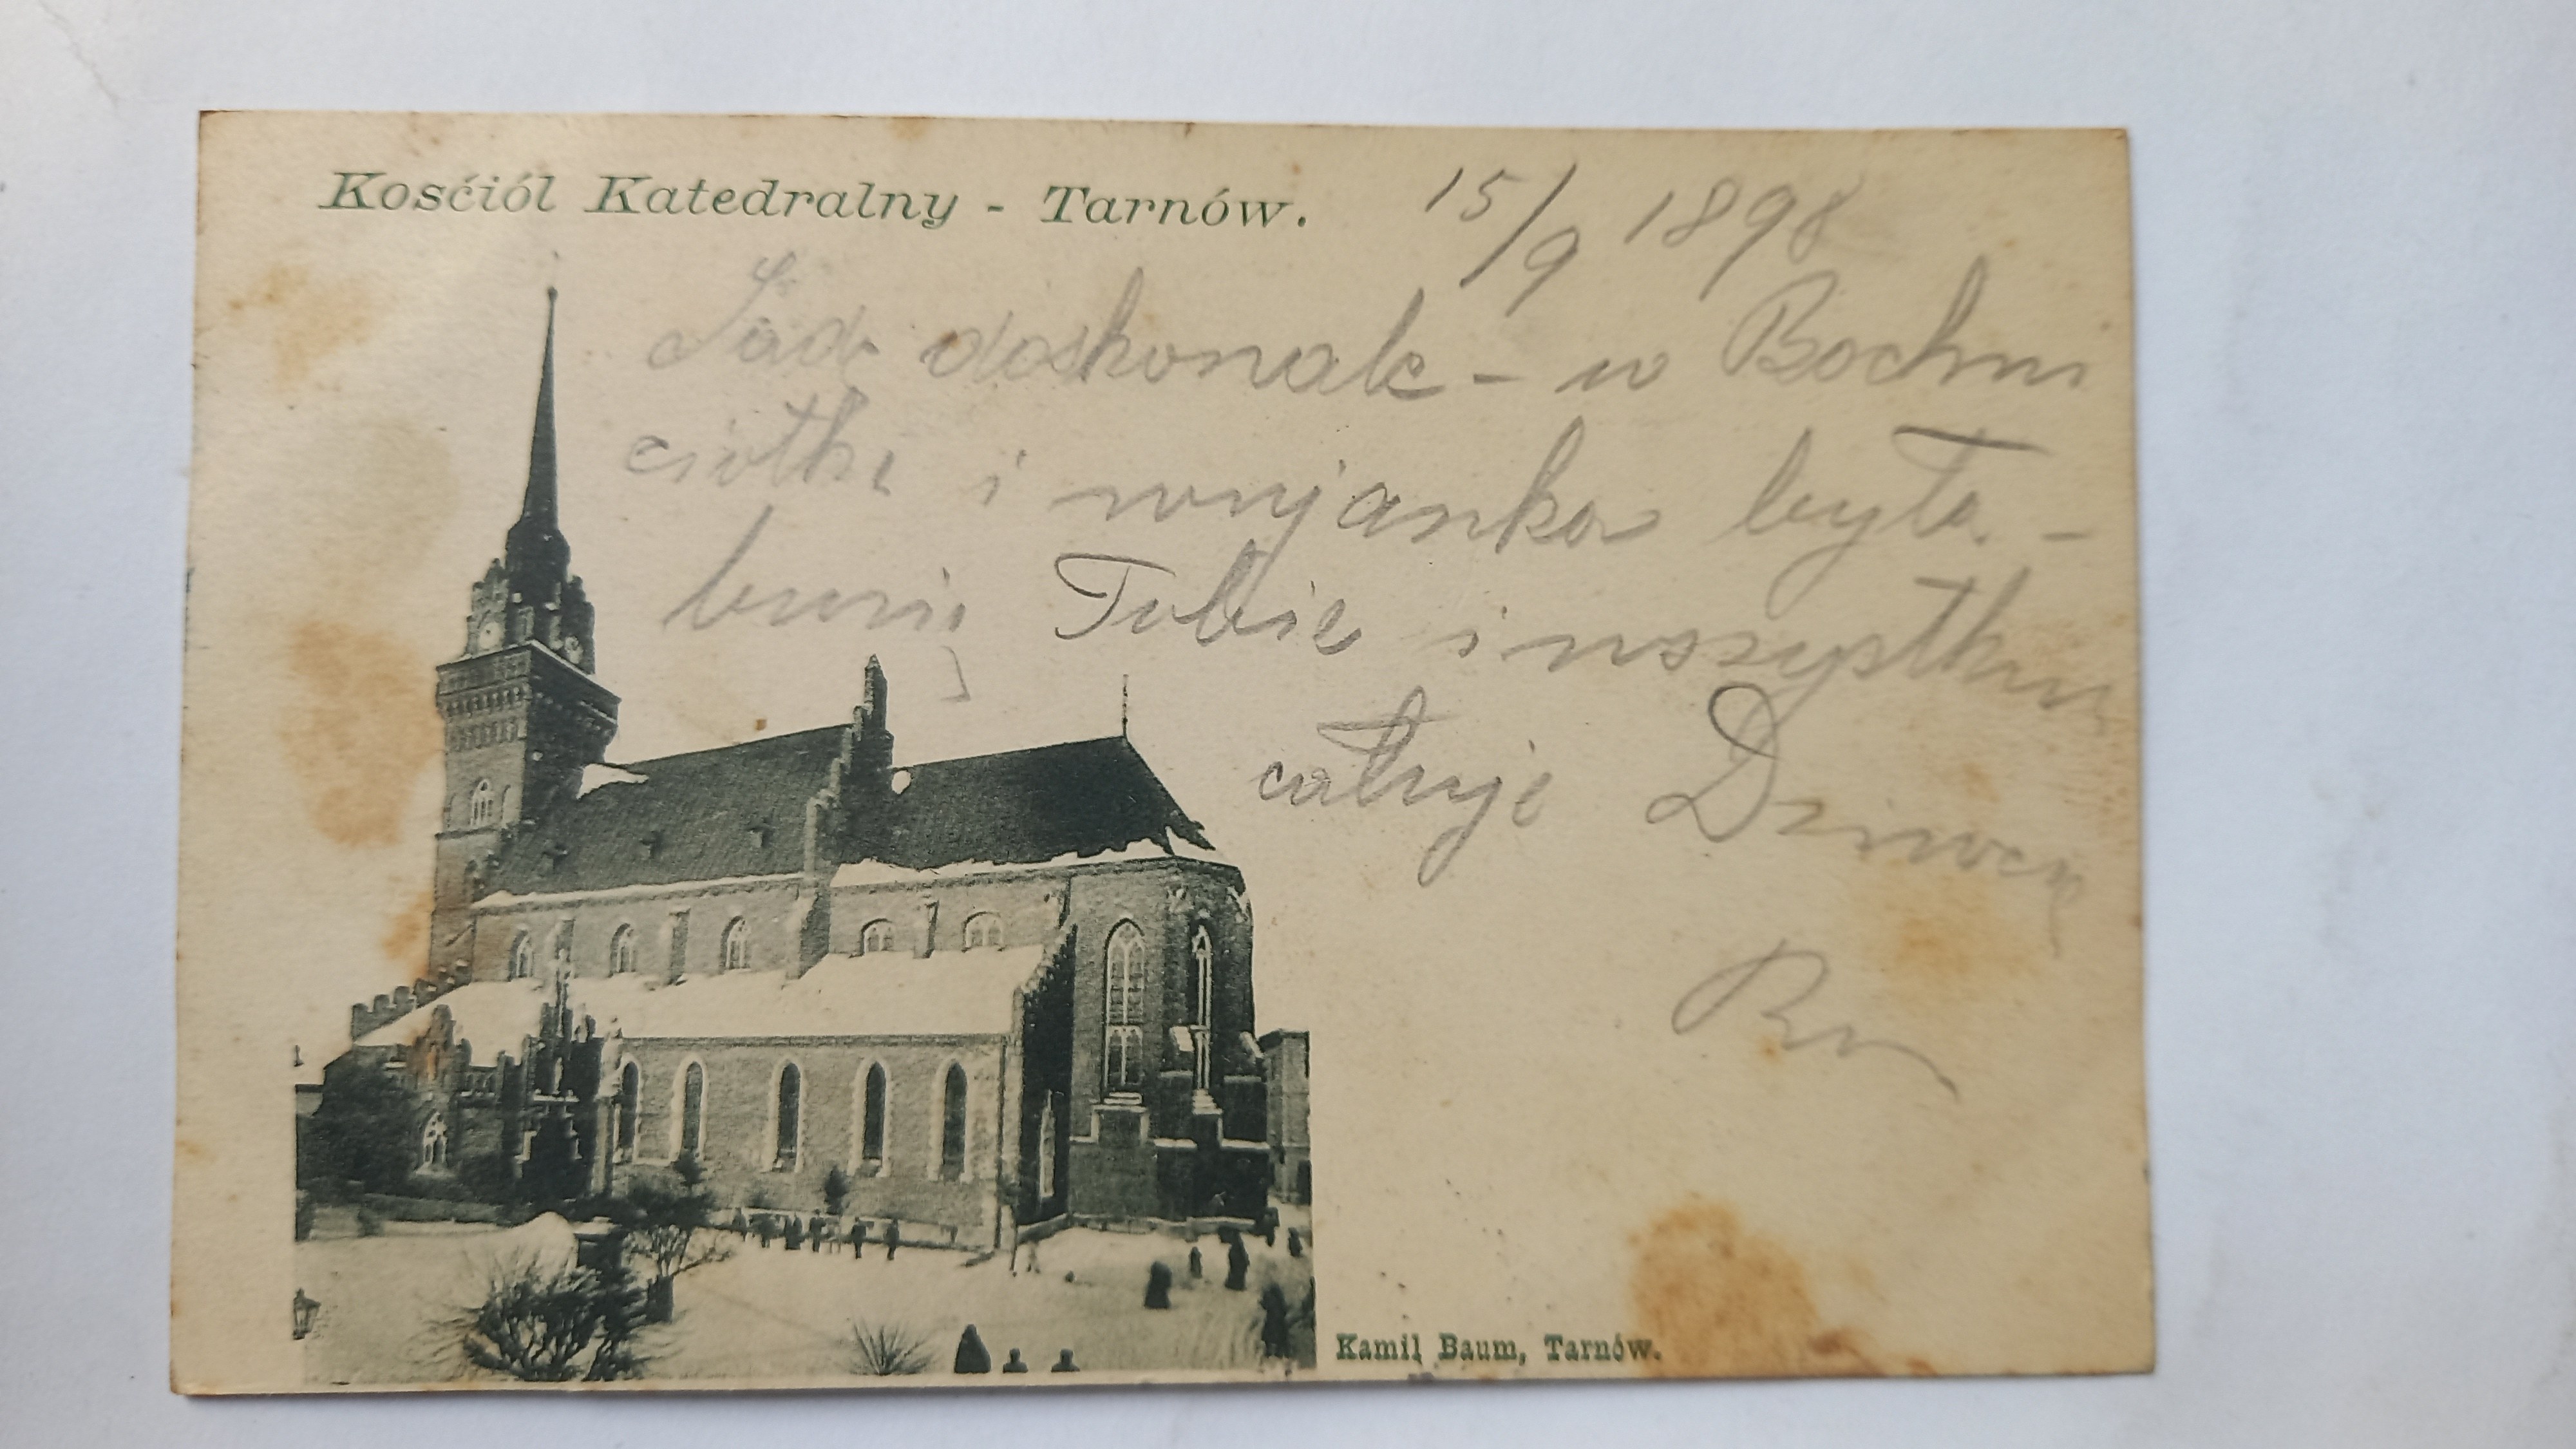 Kosćiól Katedralny - Tarnów.
15/9 1898
doskonale - w Bochni
ciotka i wujanka była -
buzię Tobie i wszystkim
całuje
Kamil Baum, Tarnów.